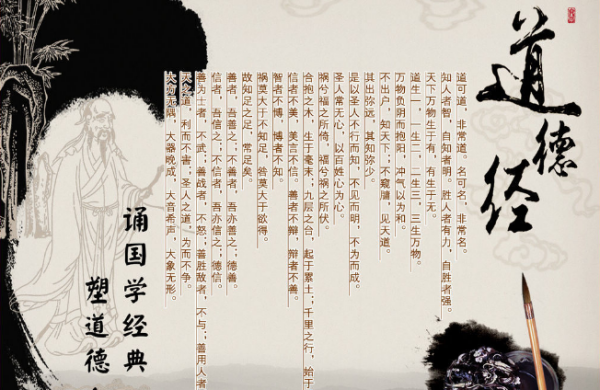 道德经
道可道，非常道。名可名，非常名。
知人者智，自知者明。胜人者有力，自胜者强。
天下万物生于有，有生于无。
道生一，一生二，二生三，三生万物。
万物负阴而抱阳，冲气以为和。
不出户，知天下；不窥牖，见天道。
其出弥远，其知弥少。
是以圣人不行而知，不见而明，不为而成。
圣人常无心，以百姓心为心。
祸兮福之所倚，福兮祸之所伏。
合抱之木，生于毫末；九层之台，起于累土；千里之行，始于
信者不美，美言不信。善者不辩，辩者不善。
智者不博，博者不知
祸莫大于不知足，咎莫大于欲得。
故知足之足，常足矣。
善者，吾善之；不善者，吾亦善之；德善。
信者，吾信之；不信者，吾亦信之；德信。
善为士者，不武；善战者，不怒；善胜敌者，不与；善用人者
天之道，利而不害；圣人之道，为而不争。
大方无隅，大器晚成，大音希声，大象无形。
诵国学经典
塑道德